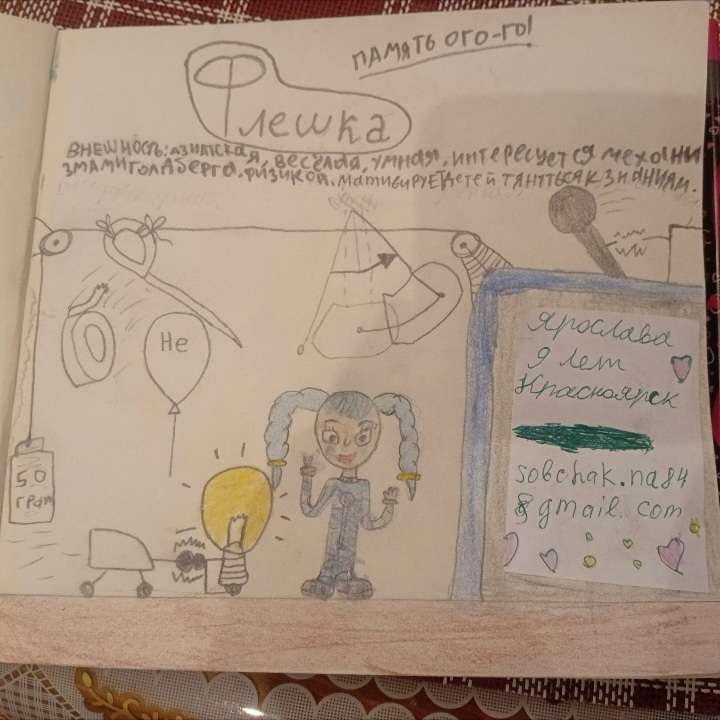 ПАМЯТЬ ОГО-ГО!
Флешка
ВНЕШНОСТЬ: АЗИАТСКАЯ, ВЕСЁЛАЯ, УМНАЯ, ИНТЕРЕСУЕТСЯ МЕХАНИ
ЗМАМИ ГОЛДБЕРГА, ФИЗИКОЙ. МАТИВИРУЕТ ДЕТЕЙ ТЯНТЬСЯ К ЗНАНИЯМ.
Не
50
грам
Ярослава
9 лет
Красноярск
sobchak.na84
@gmail.com